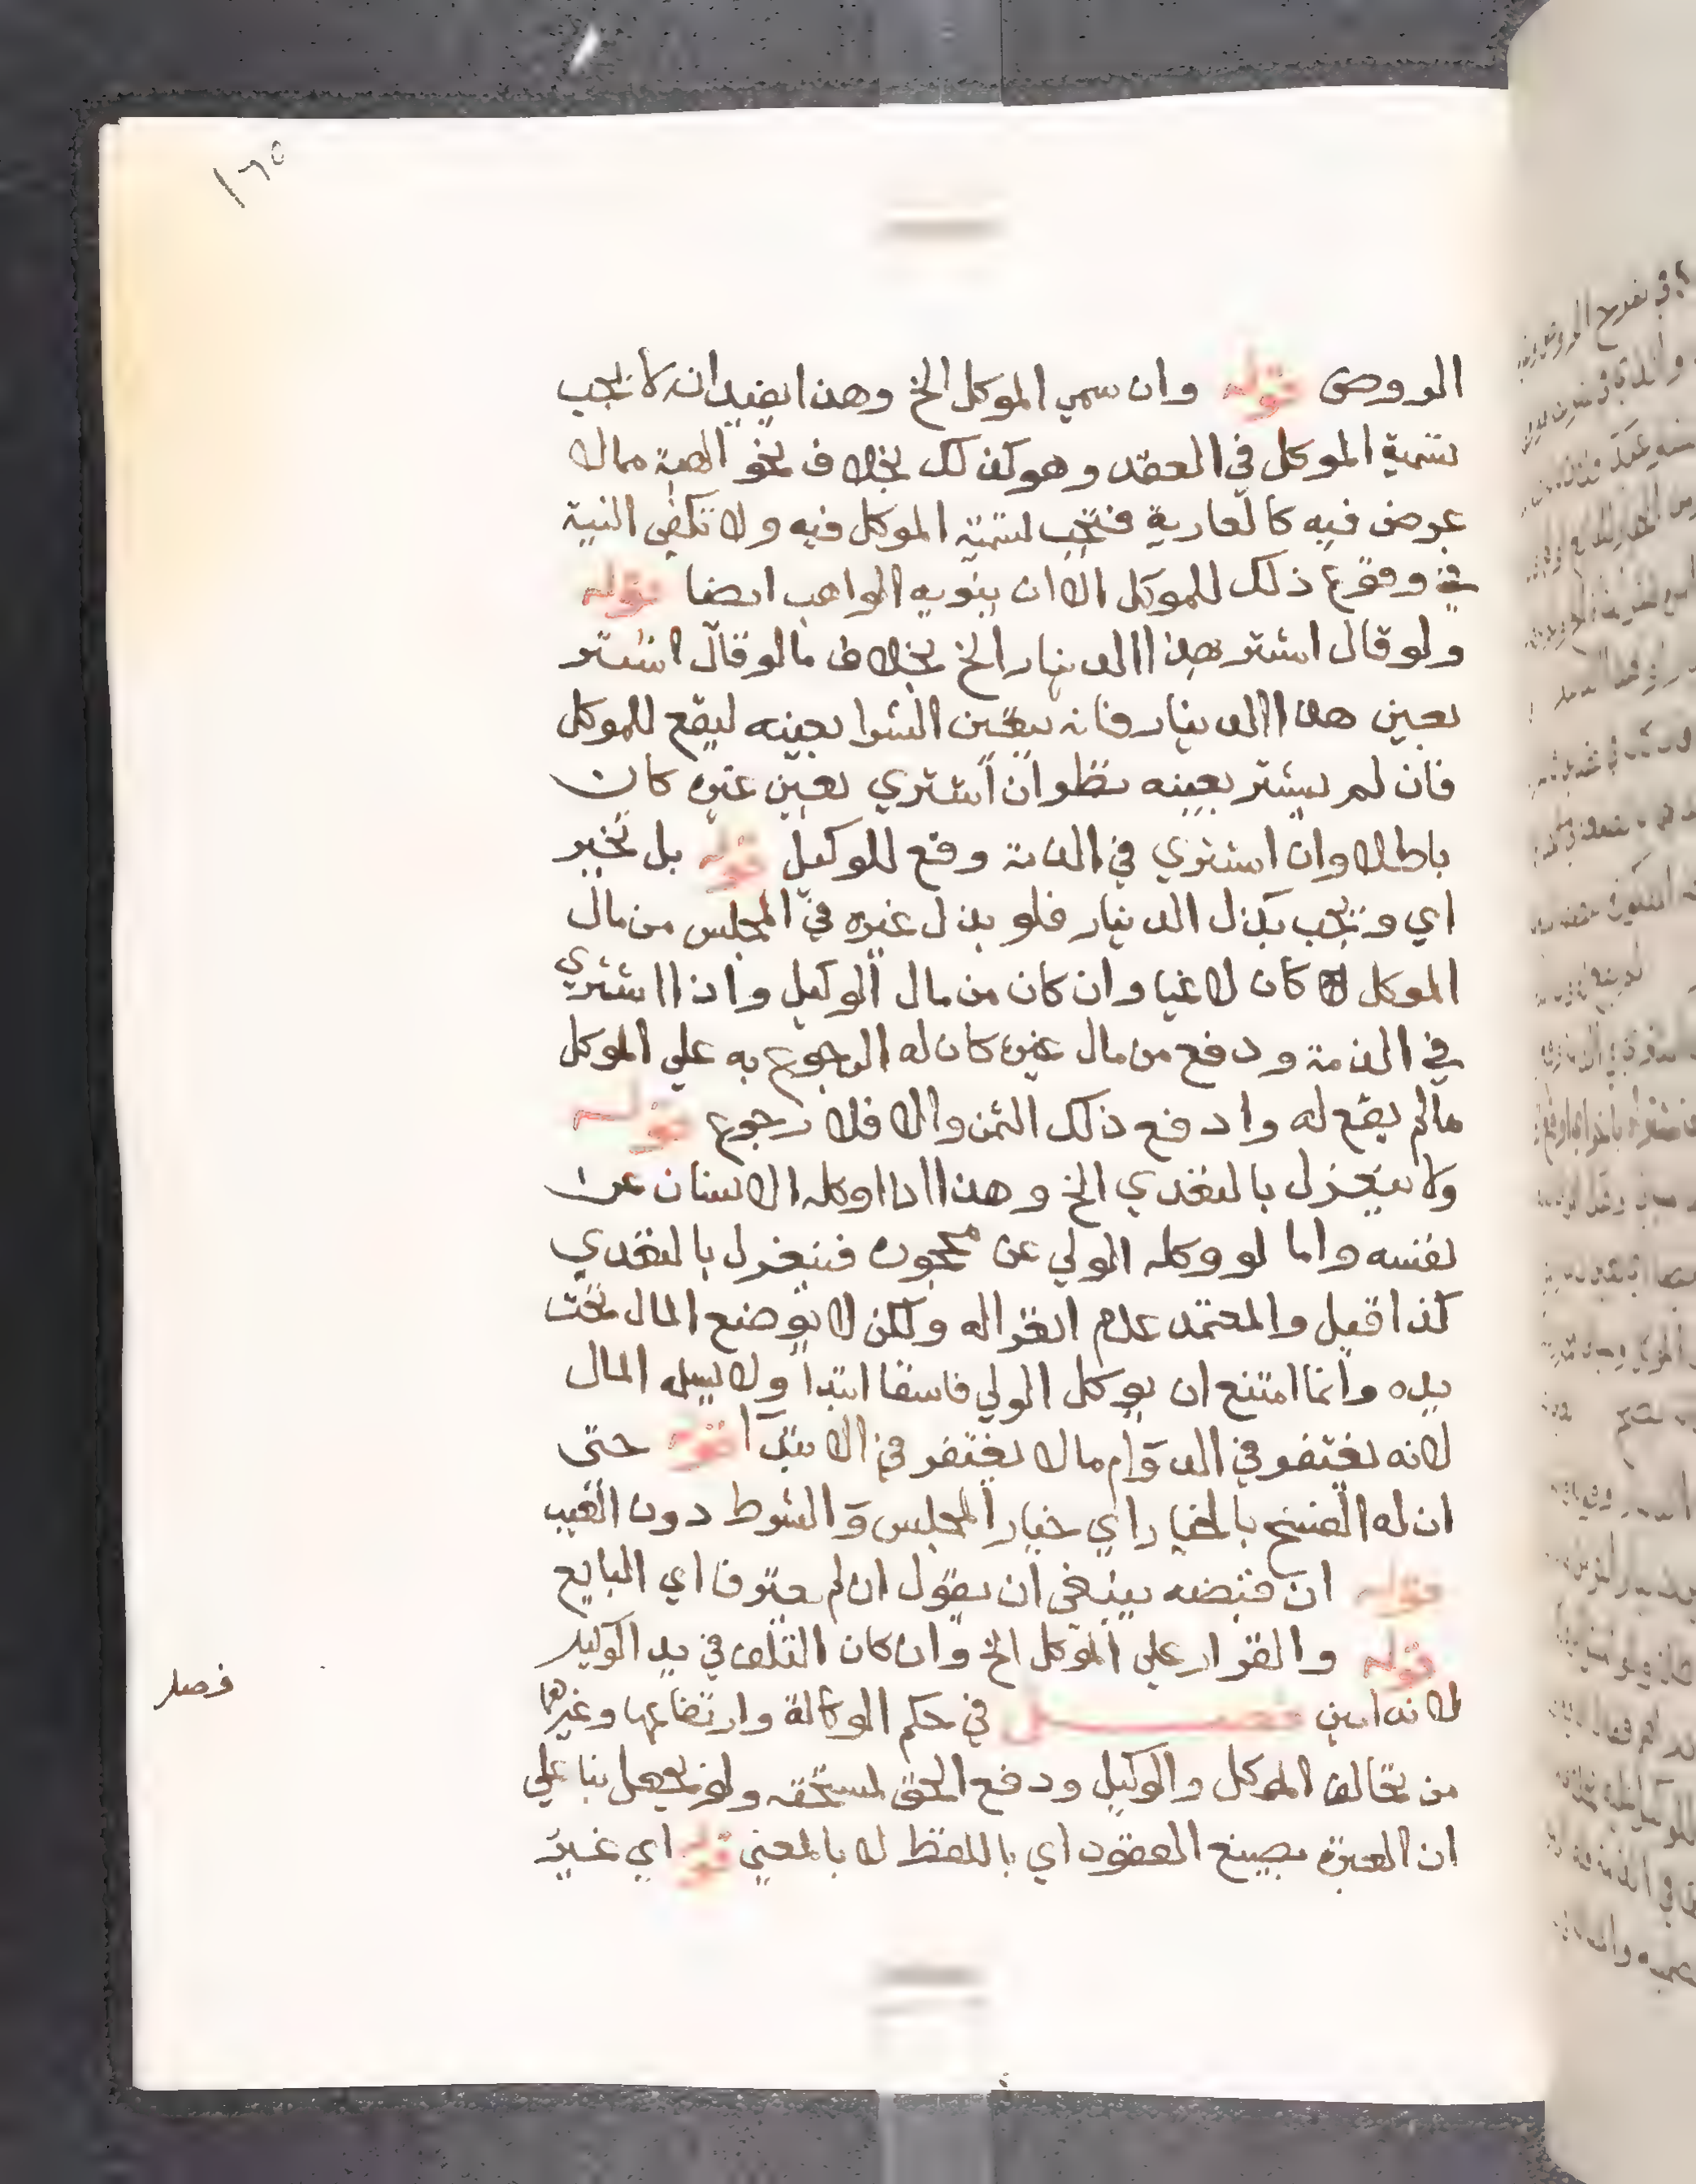 ١٦٥
الروض قوله وان سمي الموكل الخ وهذا يفيد انه لا يجب
تسمية الموكل في العقد وهو كذلك بخلاف نحو الهبة مما لا
عوض فيه كالعارية فتجب تسمية الموكل فيه ولا تكفي النية
في وقوع ذلك للموكل الا ان ينويه الواهب ايضا قوله
ولو قال اشتر بهذا الدينار الخ بخلاف ما لو قال اشتر
بعين هذا الدينار فانه يتعين الشرا بعينه ليقع للموكل
فان لم يشتر بعينه نظر ان اشتري بعين غيره كان
باطلا وان اشتري في الذمة وقع للوكيل قوله بل تخير
اي ويجب بذل الدينار فلو بذل غيره في المجلس من مال
الموكل كان لاغيا وان كان من مال الوكيل واذا اشتري
في الذمة ودفع من مال غيره كان له الرجوع به علي الموكل
ما لم يقع له وادفع ذلك الثمن والا فلا رجوع قوله
ولا ينعزل بالتعدي الخ وهذا اذا وكله الانسان عن
نفسه واما لو وكله الولي عن محجوره فينعزل بالتعدي
كذا قيل والمعتمد عدم انعزاله ولكن لا يوضع المال تحت
يده وانما امتنع ان يوكل الولي فاسقا ابتدا ولا يسلمه المال
لانه يغتفر في الدوام ما لا يغتفر في الابتدا قوله حتى
ان له الفسخ بالخيار اي خيار المجلس والشرط دون العيب
قوله ان قبضه ينبغي ان يقول ان لم يعترف اي البايع
قوله والقرار علي الموكل الخ وان كان التلف في يد الوكيل
لانه امين فصل في حكم الوكالة وارتفاعها وغيرهما
من تخالف الموكل والوكيل ودفع الحق لمستحقه ولو بجعل بنا علي
ان العبرة بصيغ العقود اي باللفظ لا بالمعني قوله اي غير
فصل